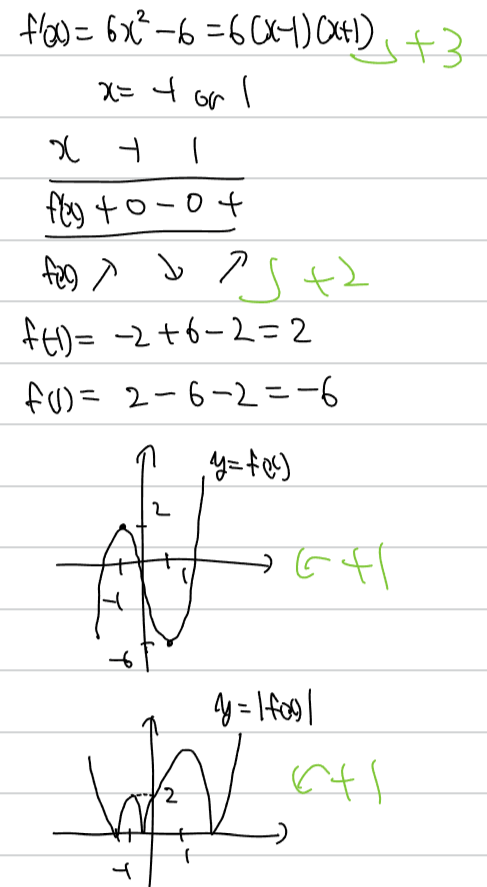 f'(x) = 6x² - 6 = 6(x-1)(x+1) +3
x = -1 or 1
x -1 1
f'(x) + 0 - 0 +
f(x) ↗ ↘ ↗ +2
f(-1) = -2 + 6 - 2 = 2
f(1) = 2 - 6 - 2 = -6
y = f(x)
2
+1
-1 1
-6
y = |f(x)|
+1
2
-1 1